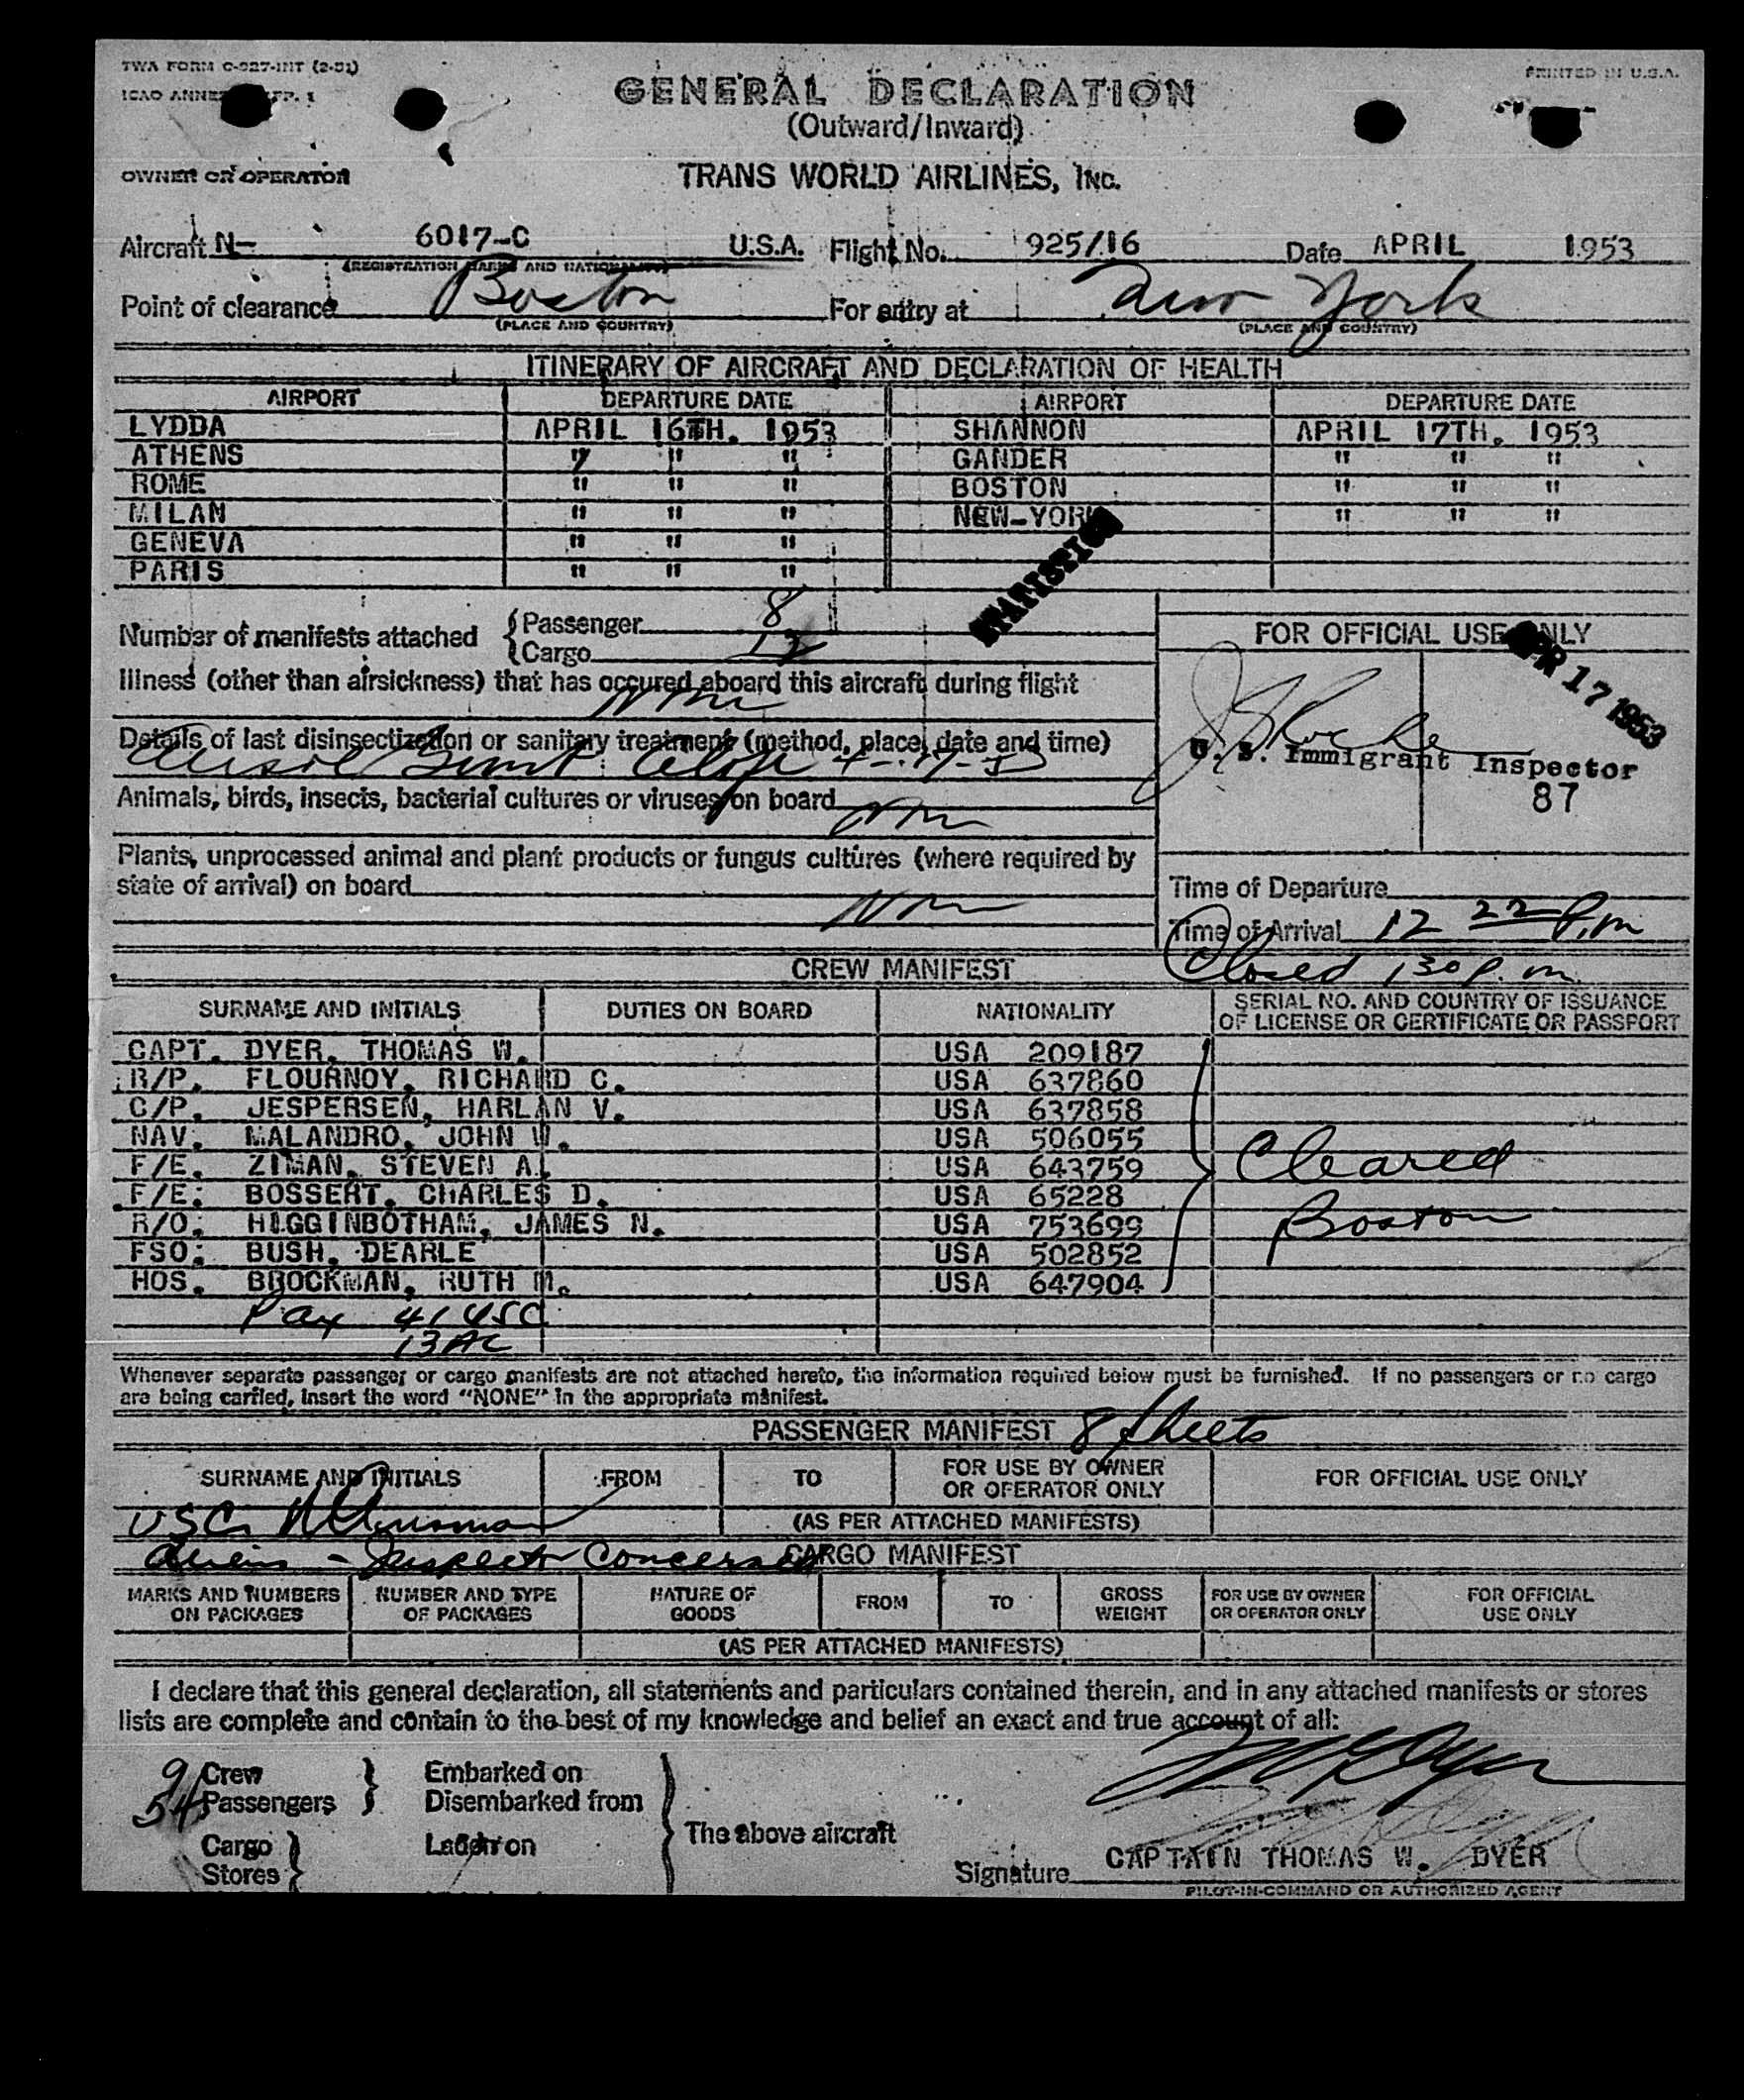 TWA FORM C-927-INT (2-51)
PRINTED IN U.S.A.
ICAO ANNEX
GENERAL DECLARATION
(Outward/Inward)
OWNER OR OPERATOR
TRANS WORLD AIRLINES, INC.
Aircraft N- 6017-C U.S.A. Flight No. 925/16 Date APRIL 1953
(REGISTRATION MARKS AND NATIONALITY)
Point of clearance Boston For entry at New York
(PLACE AND COUNTRY) (PLACE AND COUNTRY)
ITINERARY OF AIRCRAFT AND DECLARATION OF HEALTH
AIRPORT DEPARTURE DATE AIRPORT DEPARTURE DATE
LYDDA APRIL 16TH. 1953 SHANNON APRIL 17TH. 1953
ATHENS " " " GANDER " " "
ROME " " " BOSTON " " "
MILAN " " " NEW-YORK " " "
GENEVA " " "
PARIS " " "
STATISTICS
Number of manifests attached Passenger 8
Cargo 12
FOR OFFICIAL USE ONLY
APR 17 1953
Illness (other than airsickness) that has occured aboard this aircraft during flight
None
Details of last disinsectization or sanitary treatment (method, place, date and time)
4-17-53
U. S. Immigrant Inspector
87
Animals, birds, insects, bacterial cultures or viruses on board
None
Plants, unprocessed animal and plant products or fungus cultures (where required by
state of arrival) on board
None
Time of Departure
Time of Arrival 12 22 P.m
Closed 1 30 p.m.
CREW MANIFEST
SURNAME AND INITIALS DUTIES ON BOARD NATIONALITY SERIAL NO. AND COUNTRY OF ISSUANCE
OF LICENSE OR CERTIFICATE OR PASSPORT
CAPT. DYER, THOMAS W. USA 209187
R/P. FLOURNOY, RICHARD C. USA 637860
C/P. JESPERSEN, HARLAN V. USA 637858
NAV. MALANDRO, JOHN W. USA 506055
F/E. ZIMAN, STEVEN A. USA 643759 Cleared
F/E. BOSSERT, CHARLES D. USA 65228
R/O. HIGGINBOTHAM, JAMES N. USA 753699 Boston
FSO. BUSH, DEARLE USA 502852
HOS. BROCKMAN, RUTH M. USA 647904
Pax 41 USC
13 AC
Whenever separate passenger or cargo manifests are not attached hereto, the information required below must be furnished. If no passengers or no cargo
are being carried, insert the word "NONE" in the appropriate manifest.
PASSENGER MANIFEST 8 Sheets
SURNAME AND INITIALS FROM TO FOR USE BY OWNER
OR OPERATOR ONLY FOR OFFICIAL USE ONLY
USC
(AS PER ATTACHED MANIFESTS)
Aliens - Inspector Concerned
CARGO MANIFEST
MARKS AND NUMBERS
ON PACKAGES NUMBER AND TYPE
OF PACKAGES NATURE OF
GOODS FROM TO GROSS
WEIGHT FOR USE BY OWNER
OR OPERATOR ONLY FOR OFFICIAL
USE ONLY
(AS PER ATTACHED MANIFESTS)
I declare that this general declaration, all statements and particulars contained therein, and in any attached manifests or stores
lists are complete and contain to the best of my knowledge and belief an exact and true account of all:
9 Crew Embarked on
54 Passengers Disembarked from
The above aircraft
Cargo Laden on
Stores
Signature CAPTAIN THOMAS W. DYER
PILOT-IN-COMMAND OR AUTHORIZED AGENT